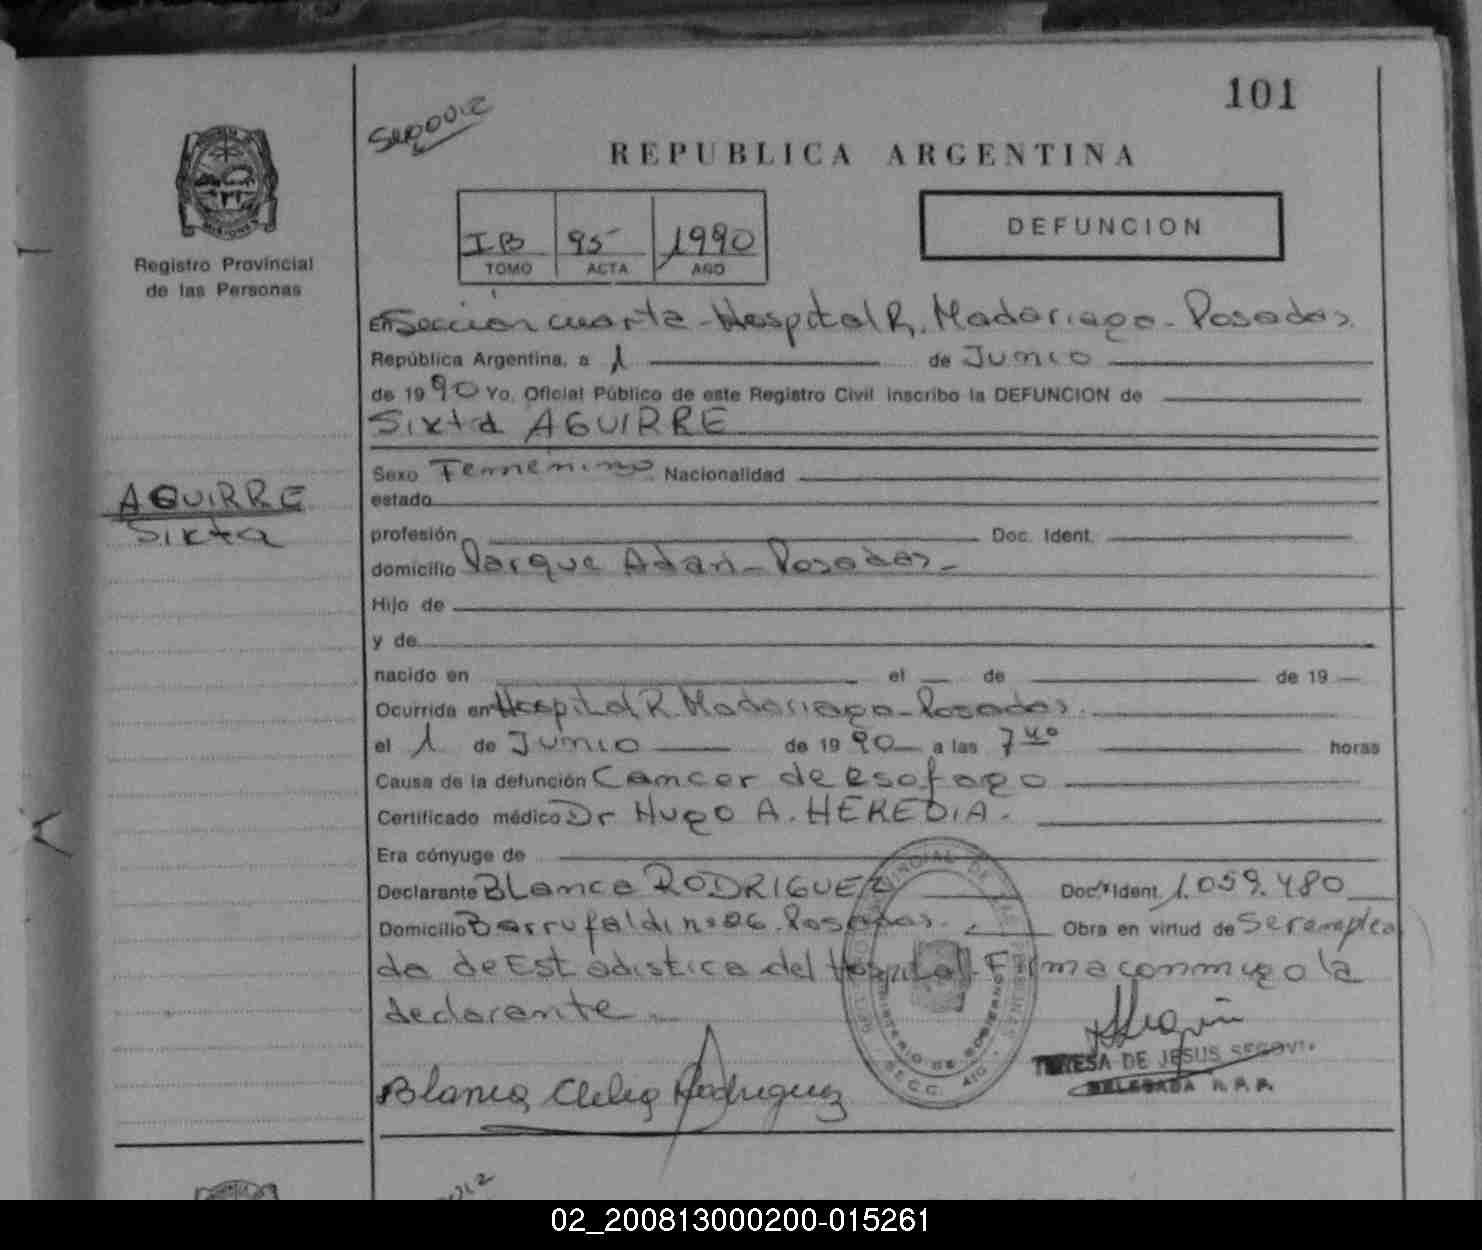 101
REPUBLICA ARGENTINA
IB 95 1990
TOMO ACTA AÑO
DEFUNCION
Registro Provincial
de las Personas
En Sección cuarta - Hospital R. Madariaga - Posadas.
República Argentina, a 1 de Junio
de 1990 Yo, Oficial Público de este Registro Civil inscribo la DEFUNCION de
Sixta AGUIRRE
Sexo Femenino Nacionalidad
AGUIRRE
Sixta
estado
profesión Doc. Ident.
domicilio Parque Adan - Posadas -
Hijo de
y de
nacido en el de de 19
Ocurrida en Hospital R. Madariaga - Posadas.
el 1 de Junio de 1990 a las 7 40 horas
Causa de la defunción Cancer de esofago
Certificado médico Dr Hugo A. HEREDIA.
Era cónyuge de
Declarante Blanca RODRIGUEZ Doc. Ident. 1.059.480
Domicilio Barrufaldi n° 06. Posadas. Obra en virtud de Ser emplea
da de Estadistica del Hospital. Firma conmigo la
declarante.
Blanca Clelia Rodriguez
TERESA DE JESUS SEGOVIA
DELEGADA R.P.P.
02_200813000200-015261